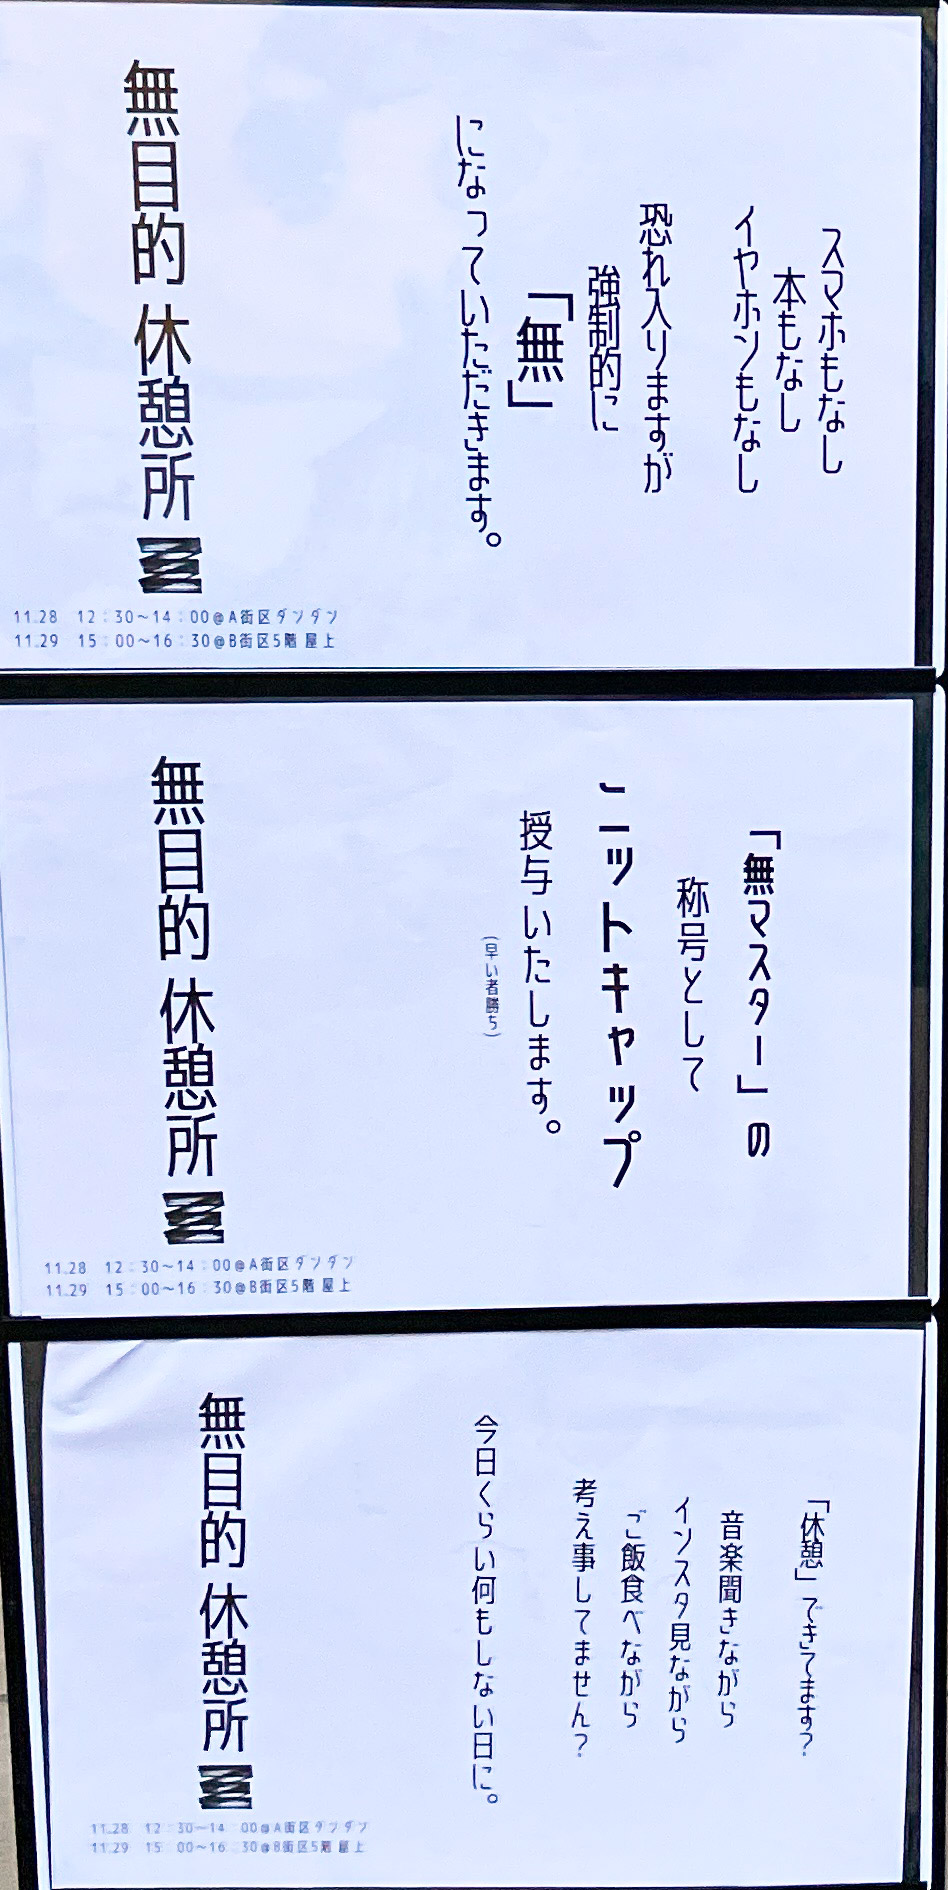 スマホもなし
本もなし
イヤホンもなし
恐れ入りますが
強制的に
「無」
になっていただきます。
無目的 休憩所
11.28 12:30~14:00@A街区ダンダン
11.29 15:00~16:30@B街区5階 屋上
「無マスター」の
称号として
ニットキャップ
授与いたします。
(早い者勝ち)
無目的 休憩所
11.28 12:30~14:00@A街区ダンダン
11.29 15:00~16:30@B街区5階 屋上
「休憩」できてます?
音楽聞きながら
インスタ見ながら
ご飯食べながら
考え事してません?
今日くらい何もしない日に。
無目的 休憩所
11.28 12:30~14:00@A街区ダンダン
11.29 15:00~16:30@B街区5階 屋上